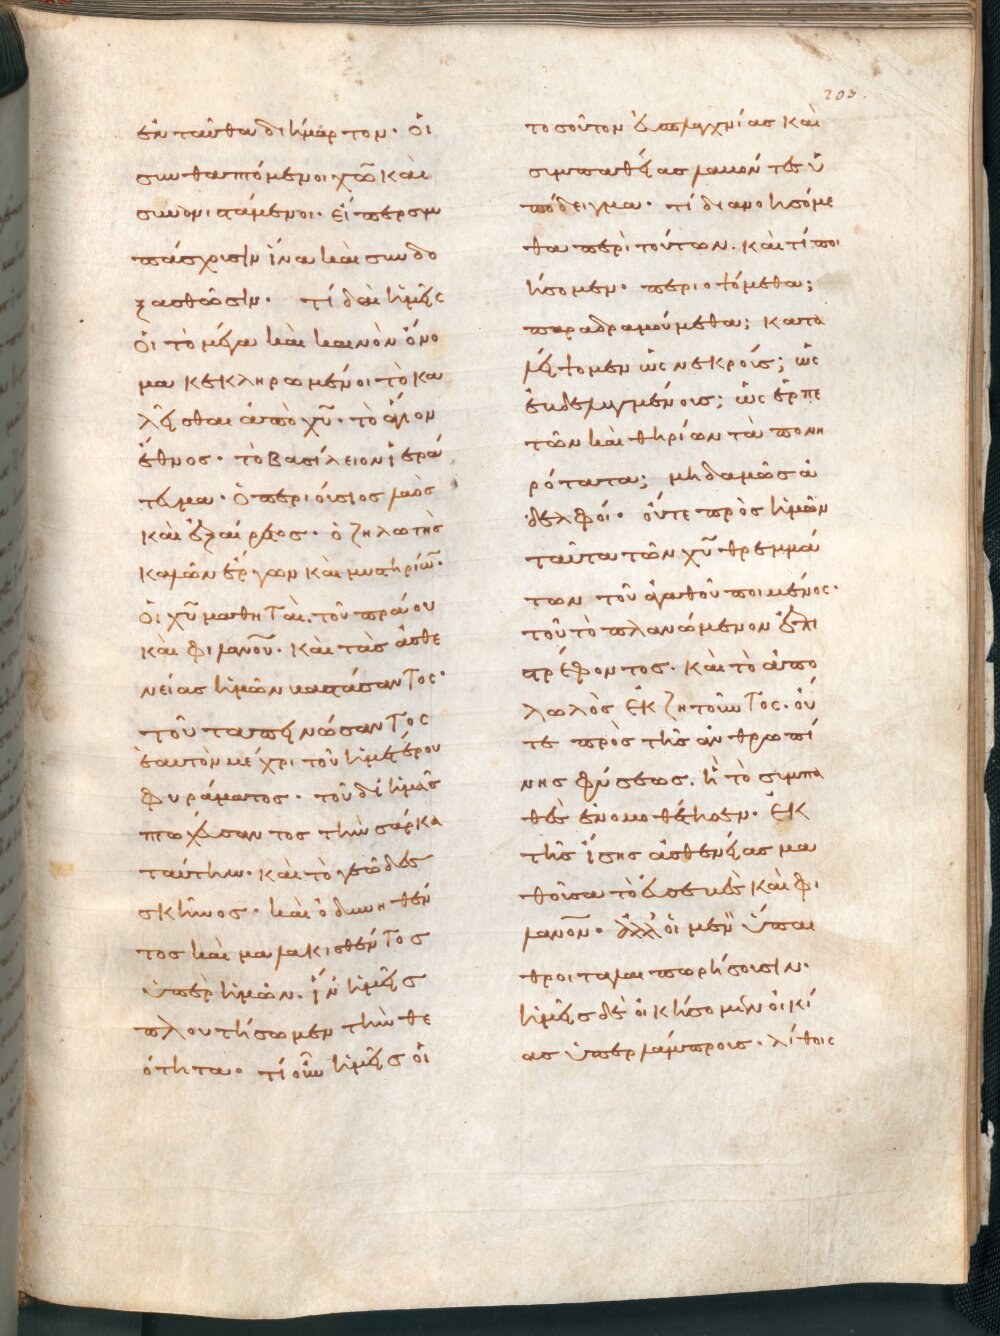 203.
ἐνταῦθα διήμαρτον· οἱ
συνθαπτόμενοι χῶ καὶ
συνανιστάμενοι· εἴπερ συμ
πάσχωσιν ἵνα καὶ συνδο
ξασθῶσιν· τί δαὶ ἡμεῖς
οἱ τὸ μέγα καὶ καινὸν ὄνο
μα κεκληρωμένοι τὸ κα
λεῖσθαι ἀπὸ χυ· τὸ ἅγιον
ἔθνος· τὸ βασίλειον ἱερά
τευμα· ὁ περιούσιος λαὸς
καὶ ἐξαίρετος· ὁ ζηλωτὴς
καλῶν ἔργων καὶ σωτηρίων·
οἱ χυ μαθηταὶ· τοῦ πράου
καὶ φιλανου· καὶ τὰς ἀσθε
νείας ἡμῶν βαστάσαντος·
τοῦ ταπεινώσαντος
ἑαυτὸν μέχρι τοῦ ἡμετέρου
φυράματος· τοῦ δι ἡμᾶς
πτωχεύσαντος τὴν σάρκα
ταύτην· καὶ τὸ γεῶδες
σκῆνος· καὶ ὀδυνηθέν
τος καὶ μαλακισθέντος
ὑπὲρ ἡμῶν· ἵν ἡμεῖς
πλουτήσωμεν τὴν θε
ότητα· τί οὖν ἡμεῖς οἱ
τοσοῦτον εὐσπλαγχνίας καὶ
συμπαθείας λαβόντες ὑ
πόδειγμα· τί διανοησόμε
θα περὶ τούτων· καὶ τί ποι
ήσομεν· περιοψόμεθα;
παραδραμούμεθα; κατα
λείψομεν ὡς νεκρούς; ὡς
ἐβδελυγμένους; ὡς ἑρπε
τῶν καὶ θηρίων τὰ πονη
ρότατα; μηδαμῶς ἀ
δελφοί· οὔτε πρὸς ἡμῶν
ταῦτα τῶν χυ θρεμμά
των τοῦ ἀγαθοῦ ποιμένος·
τοῦ τὸ πλανώμενον ἐπι
στρέφοντος· καὶ τὸ ἀπο
λωλὸς ἐκζητοῦντος· οὔ
τε πρὸς τῆς ἀνθρωπί
νης φύσεως· ἣ τὸ συμπα
θεῖν ἐνομοθέτησεν· ἐκ
τῆς ἴσης ἀσθενείας μα
θοῦσα τὸ εὐσεβὲς καὶ φι
λανον· ἀλλ οἱ μὲν ὕπαι
θροι ταλαιπωρήσουσιν·
ἡμεῖς δὲ οἰκήσομεν οἰκί
ας ὑπερλάμπρους· λίθοις